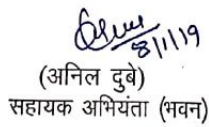 8/1/19
(अनिल दुबे)
सहायक अभियंता (भवन)